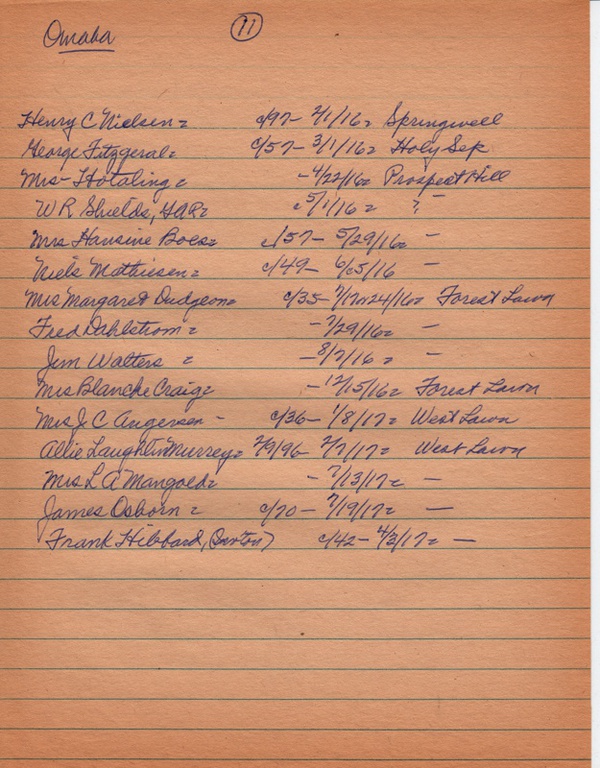 Omaha 11
Henry C Nielsen= c/97- 2/1/16= Springwell
George Fitzgeral= c/57- 3/1/16= Holy Sep
Mrs- Hotaling= -4/22/16= Prospect Hill
W R Shields, GAR= c5/1/16= ? -
Mrs Hansine Boes= c/57- 5/29/16= -
Niels Mathiesen= c/49- 6/25/16 -
Mrs Margaret Dudgeon= c/35- 7/17or24/16= Forest Lawn
Fred Dahlstrom= -7/29/16= -
Jim Walters = -8/7/16 = -
Mrs Blanche Craig= -12/15/16= Forest Lawn
Mrs J C Angersen- c/36- 1/8/17= West Lawn
Allie Laughlin Murrey= 2/9/96- 2/7/17= West Lawn
Mrs L A Mangold= - 7/13/17= -
James Osborn = c/70- 7/19/17= -
Frank Hibbard, ( ) c/42- 4/3/17= -